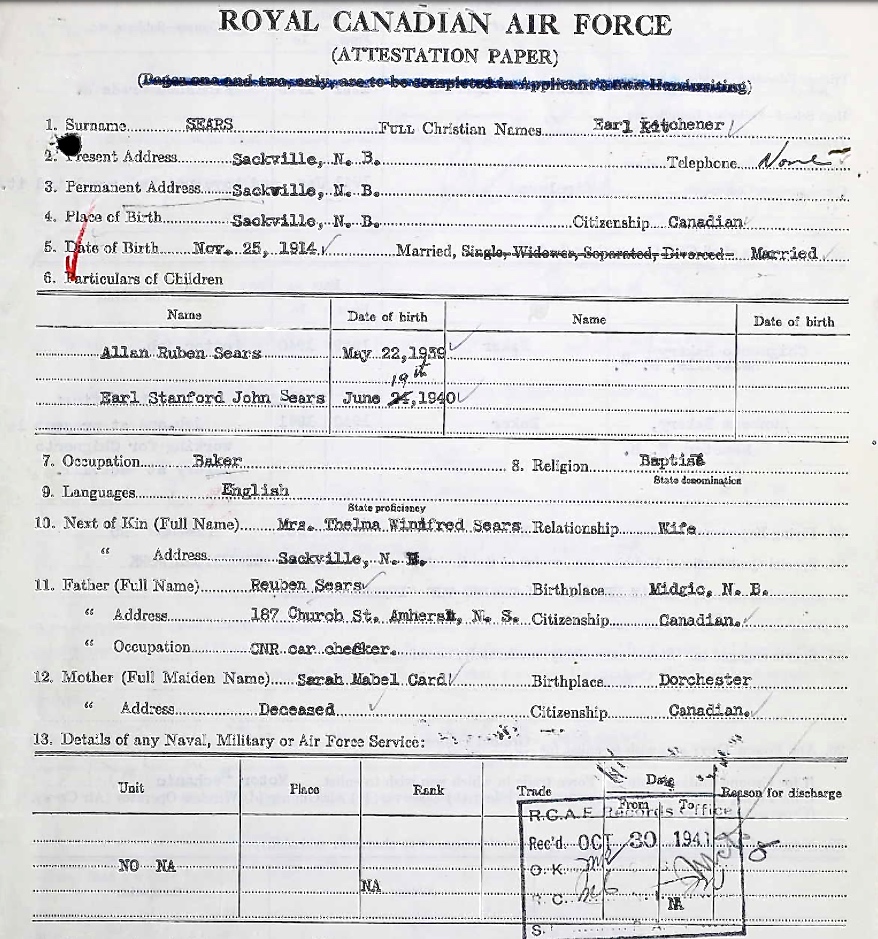 ROYAL CANADIAN AIR FORCE
(ATTESTATION PAPER)
(Pages one and two, only, are to be completed in Applicant's Own Handwriting)
1. Surname SEARS FULL Christian Names Earl Kitchener
2. Present Address Sackville, N. B. Telephone None
3. Permanent Address Sackville, N. B.
4. Place of Birth Sackville, N. B. Citizenship Canadian
5. Date of Birth Nov. 25, 1914 Married, Single, Widower, Separated, Divorced Married
6. Particulars of Children
Name Date of birth Name Date of birth
Allan Ruben Sears May 22, 1939
19th
Earl Stanford John Sears June 1940
7. Occupation Baker 8. Religion Baptist
State denomination
9. Languages English
State proficiency
10. Next of Kin (Full Name) Mrs. Thelma Winifred Sears Relationship Wife
" Address Sackville, N. B.
11. Father (Full Name) Reuben Sears Birthplace Midgic, N. B.
" Address 187 Church St. Amherst, N. S. Citizenship Canadian.
" Occupation CNR car checker.
12. Mother (Full Maiden Name) Sarah Mabel Card Birthplace Dorchester
" Address Deceased Citizenship Canadian.
13. Details of any Naval, Military or Air Force Service:
Unit Place Rank Trade Date Reason for discharge
From To
R.C.A.F. Records Office
Rec'd. OCT 30 1941
NO NA
O.K.
NA
R.C. NA
S.